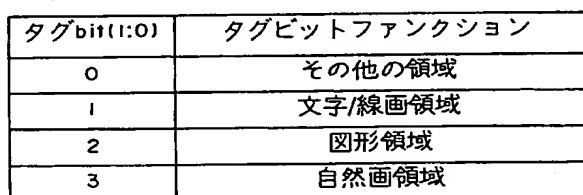 タグbit(1:0) タグビットファンクション
0 その他の領域
1 文字/線画領域
2 図形領域
3 自然画領域